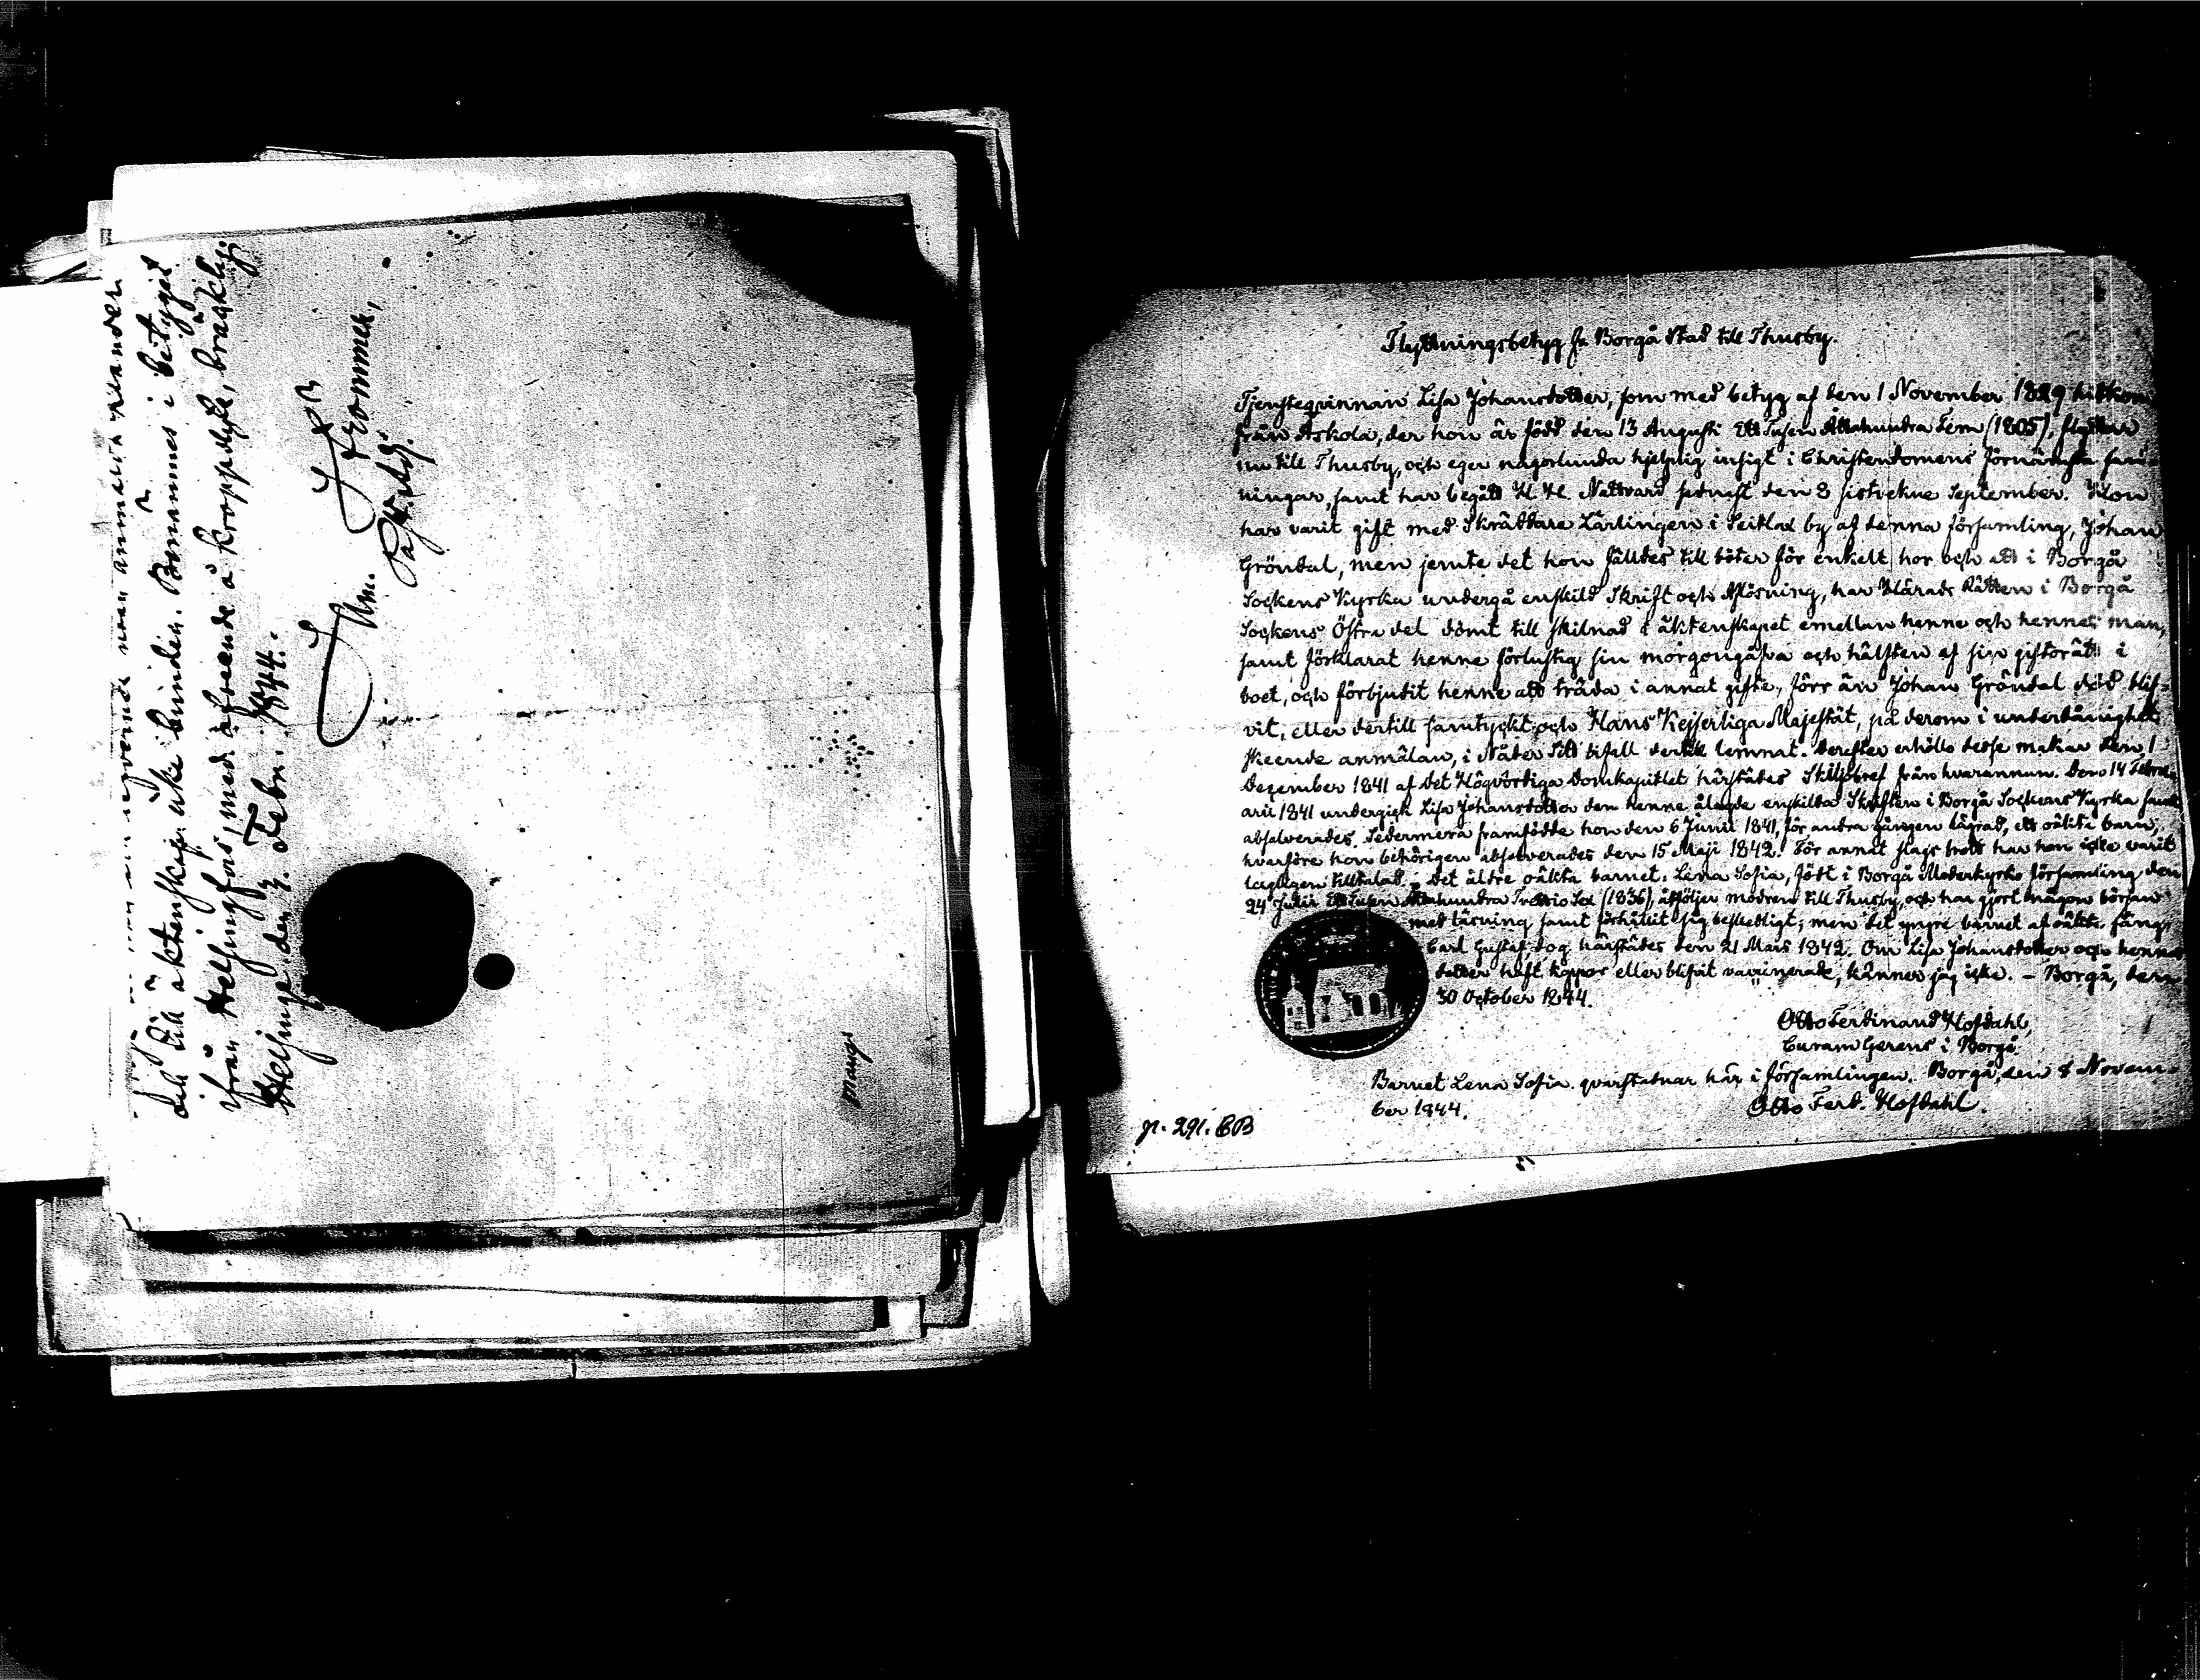 till äktenskap icke bunden. Benämnes i betyget
från Helsingfors, med afseende å kroppslyte, bräcklig.
Helsinge den 3. Febr. 1844.
Strommer,
Mauz
Flyttningsbetyg fr Borgå Stad till Thusby.
Tjensteqvinnan Lisa Johansdotter, som med betyg af den 1 November 1829 hitkom
från Askola, der hon är född den 13 Augusti Ett Tusen Åttahundra Fem (1805), flyttar
nu till Thusby, och eger någorlunda hjelplig insigt i Christendomens förnämsta san-
ningar, samt har begått H. H. Nattvard sednast den 8 sistvekne September. Hon
har varit gift med Skräddare Lärlingen i Seitlax by af denna församling, Johan
Gröndal, men jemte det hon fälldes till böter för enkelt hor och att i Borgå
Sockens Kyrka undergå enskild Skrift och Aflösning, har Härads Rätten i Borgå
Sockens Östra del dömt till skilnad i äktenskapet emellan henne och hennes man,
samt förklarat henne förlustig sin morgongåfva och hälften af sin giftorätt i
boet, och förbjudit henne att träda i annat gifte, förr än Johan Gröndal död blif-
vit, eller dertill samtyckt och Hans Kejserliga Majestät, på derom i underdånighet
skeende anmälan, i Nåder Sitt bifall dertill lemnat. Derefter erhöllo desse makar den 1
December 1841 af det Högvördiga Domkapitlet härstädes Skiljobref från hvarannan. Den 14 Febru-
arii 1841 undergick Lisa Johansdotter den henne ålagde enskilda Skriften i Borgå Sockens Kyrka samt
absolverades. Sedermera framfödde hon den 6 Junii 1841, för andra gången lägrad, ett oäkta barn,
hvarföre hon behörigen absolverades den 15 Maji 1842. För annat slags brott har hon icke varit
lagligen tilltalad. Det äldre oäkta barnet, Lena Sofia, född i Borgå Moderkyrko församling den
24 Julii Ett Tusen Åttahundra Trettio Sex (1836), åtföljer modren till Thusby, och har gjort någon början
med läsning samt förhållit sig beskedligt; men det yngre barnet af oäkta säng,
Carl Gustaf, dog härstädes den 21 Mars 1842. Om Lisa Johansdotter och hennes
dotter haft koppor eller blifvit vaccinerade, känner jag icke. – Borgå, den
30 October 1844.
Otto Ferdinand Hofdahl,
Curam Gerens i Borgå.
Barnet Lena Sofia qvarstadnar här i församlingen. Borgå, den 8 Novem-
ber 1844.
Otto Ferd. Hofdahl.
p. 291. CB